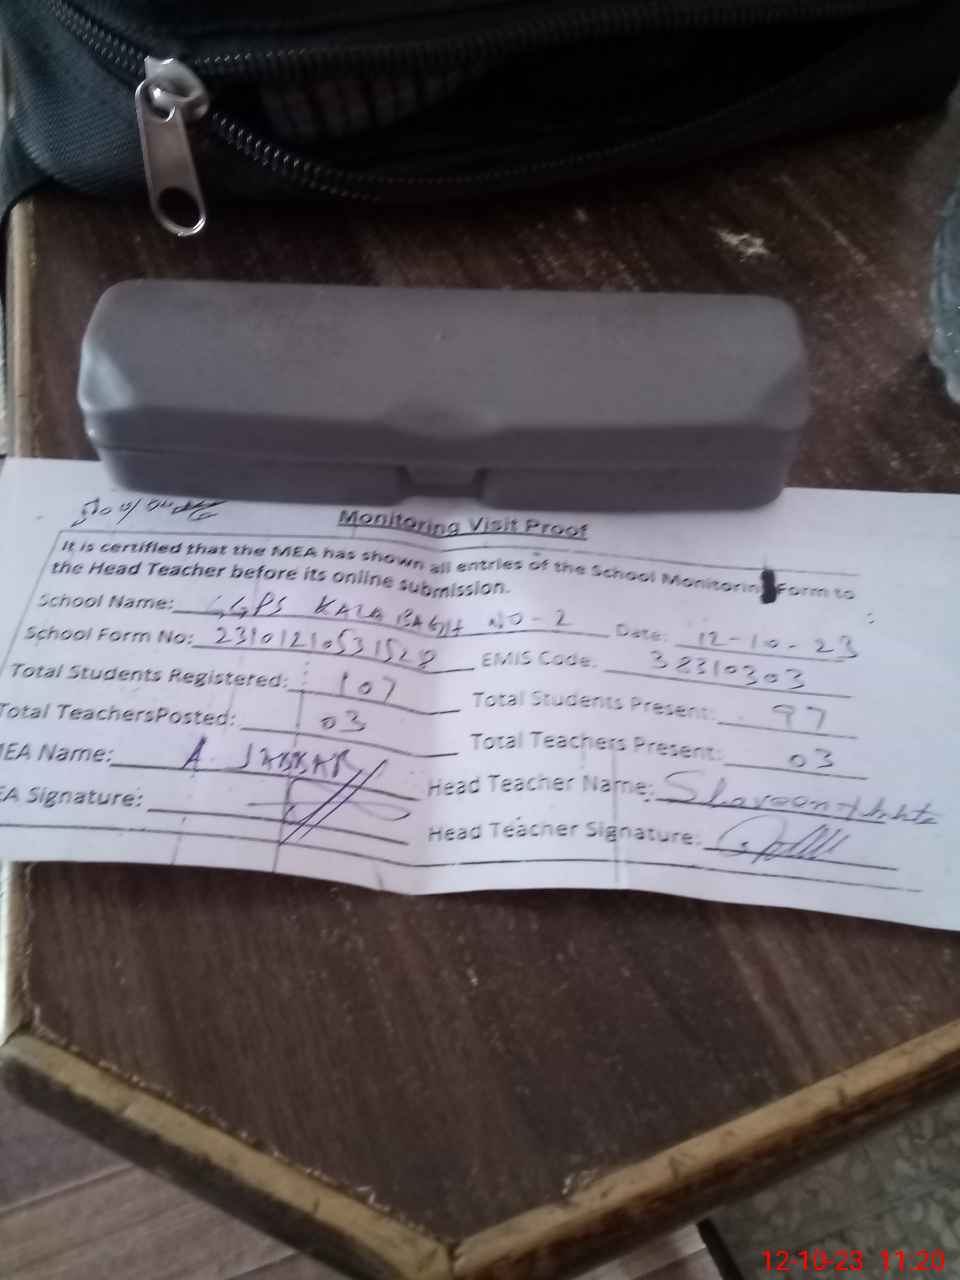 Monitoring Visit Proof
It is certified that the MEA has shown all entries of the School Monitoring Form to
the Head Teacher before its online submission.
School Name: GGPS KALA BAGH NO-2 Date: 12-10-23
School Form No: 23101210531528 EMIS Code: 38310303
Total Students Registered: 107 Total Students Present: 97
Total TeachersPosted: 03 Total Teachers Present: 03
MEA Name: A. JABBAR Head Teacher Name:
EA Signature: Head Teacher Signature:
12-10-23 11:20